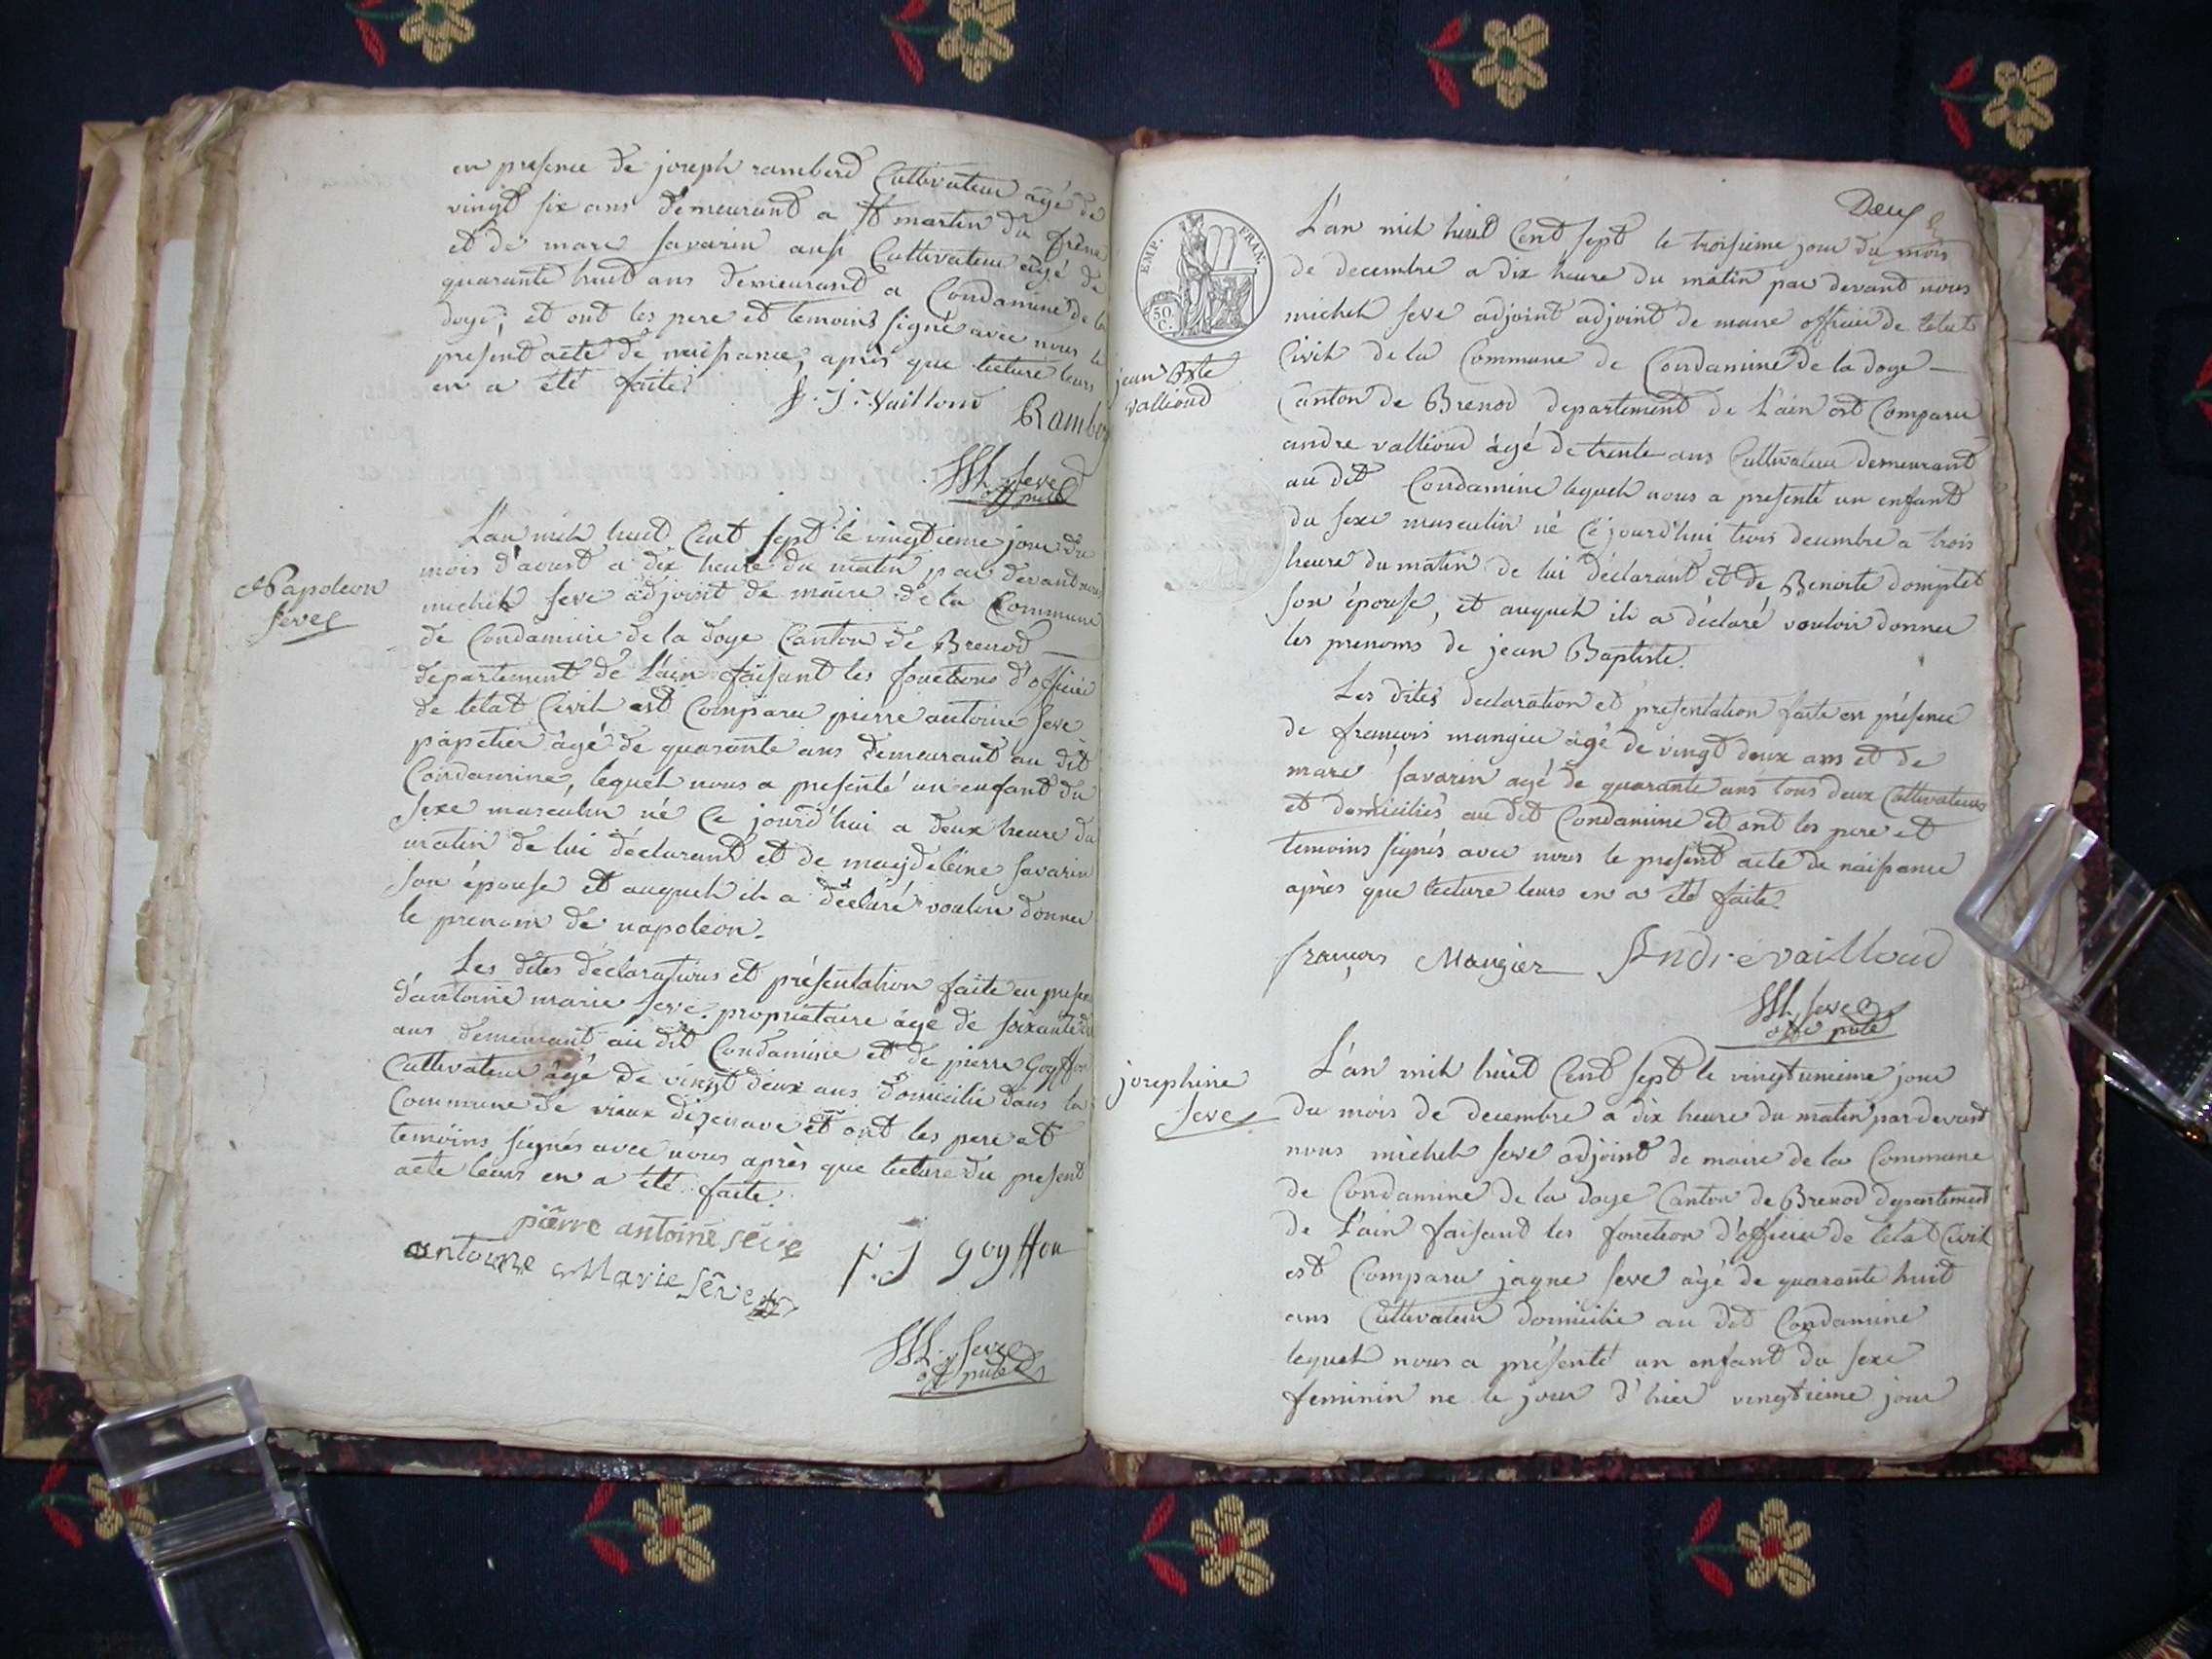 en presence de joseph ramberd Cultivateur âgé de
vingt six ans demeurant a St martin du frêne
et de marc savarin aussi Cultivateur âgé de
quarante huit ans demeurant a Condamine de la
doye; et ont les pere et temoins signé avec nous le
present acte de naissance, après que lecture leurs
en a été faite.
Vailloud
Ramber
M. seve
off public
Napoleon
seve
L'an mil huit Cent sept le vingtieme jour du
mois d'aoust a dix heure du matin par devant nous
michel seve adjoint de maire de la Commune
de Condamine de la doye Canton de Brenod
departement de L'ain faisant les fonctions d'officier
de letat Civil est Comparu pierre antoine seve
papetier âgé de quarante ans demeurant au dit
Condamine, lequel nous a presenté un enfant du
sexe masculin né Ce jourd'hui a deux heure du
matin de lui déclarant et de magdeleine savarin
son épouse et auquel il a déclaré vouloir donner
le prenom de napoléon.
Les dites déclarations et présentation faite en presen
d'antoine marie seve proprietaire âgé de soixante
ans demeurant au dit Condamine et de pierre Goyffon
Cultivateur âgé de vingt deux ans domicilié dans la
Commune de vieux dizenave et ont les pere et
temoins signés avec nous après que lecture du present
acte leurs en a été faite.
pierre antoine séve
antoine Marie Séve
p. J goyffon
M. seve
off public
Deux
EMP. FRAN.
50 C.
jean Bste
vallioud
L'an mil huit Cent sept le troisieme jour du mois
de decembre a dix heure du matin par devant nous
michel seve adjoint adjoint de maire officier de letat
Civil de la Commune de Condamine de la doye
Canton de Brenod departement de L'ain est Comparu
andre vallioud âgé de trente ans Cultivateur demeurant
au dit Condamine lequel nous a presenté un enfant
du sexe masculin né Ce jourd'hui trois decembre a trois
heure du matin de lui déclarant et de Benoite domptet
son épouse, et auquel il a déclaré vouloir donner
les prenoms de jean Baptiste.
Les dites declaration et presentation faite en présence
de francois mangier âgé de vingt deux ans et de
marc savarin agé de quarante ans tous deux Cultivateurs
et domiciliés au dit Condamine et ont les pere et
temoins signés avec nous le present acte de naissance
après que lecture leurs en a été faite.
françois Mangier
André vailloud
M. seve
off public
josephine
seve
L'an mil huit Cent sept le vingtunieme jour
du mois de decembre a dix heure du matin par devant
nous michel seve adjoint de maire de la Commune
de Condamine de la doye Canton de Brenod departement
de L'ain faisant les fonction d'officier de letat Civil
est Comparu jaque seve âgé de quarante huit
ans Cultivateur domicilié au dit Condamine
lequel nous a présenté un enfant du sexe
feminin ne le jour d'hier vingtieme jour